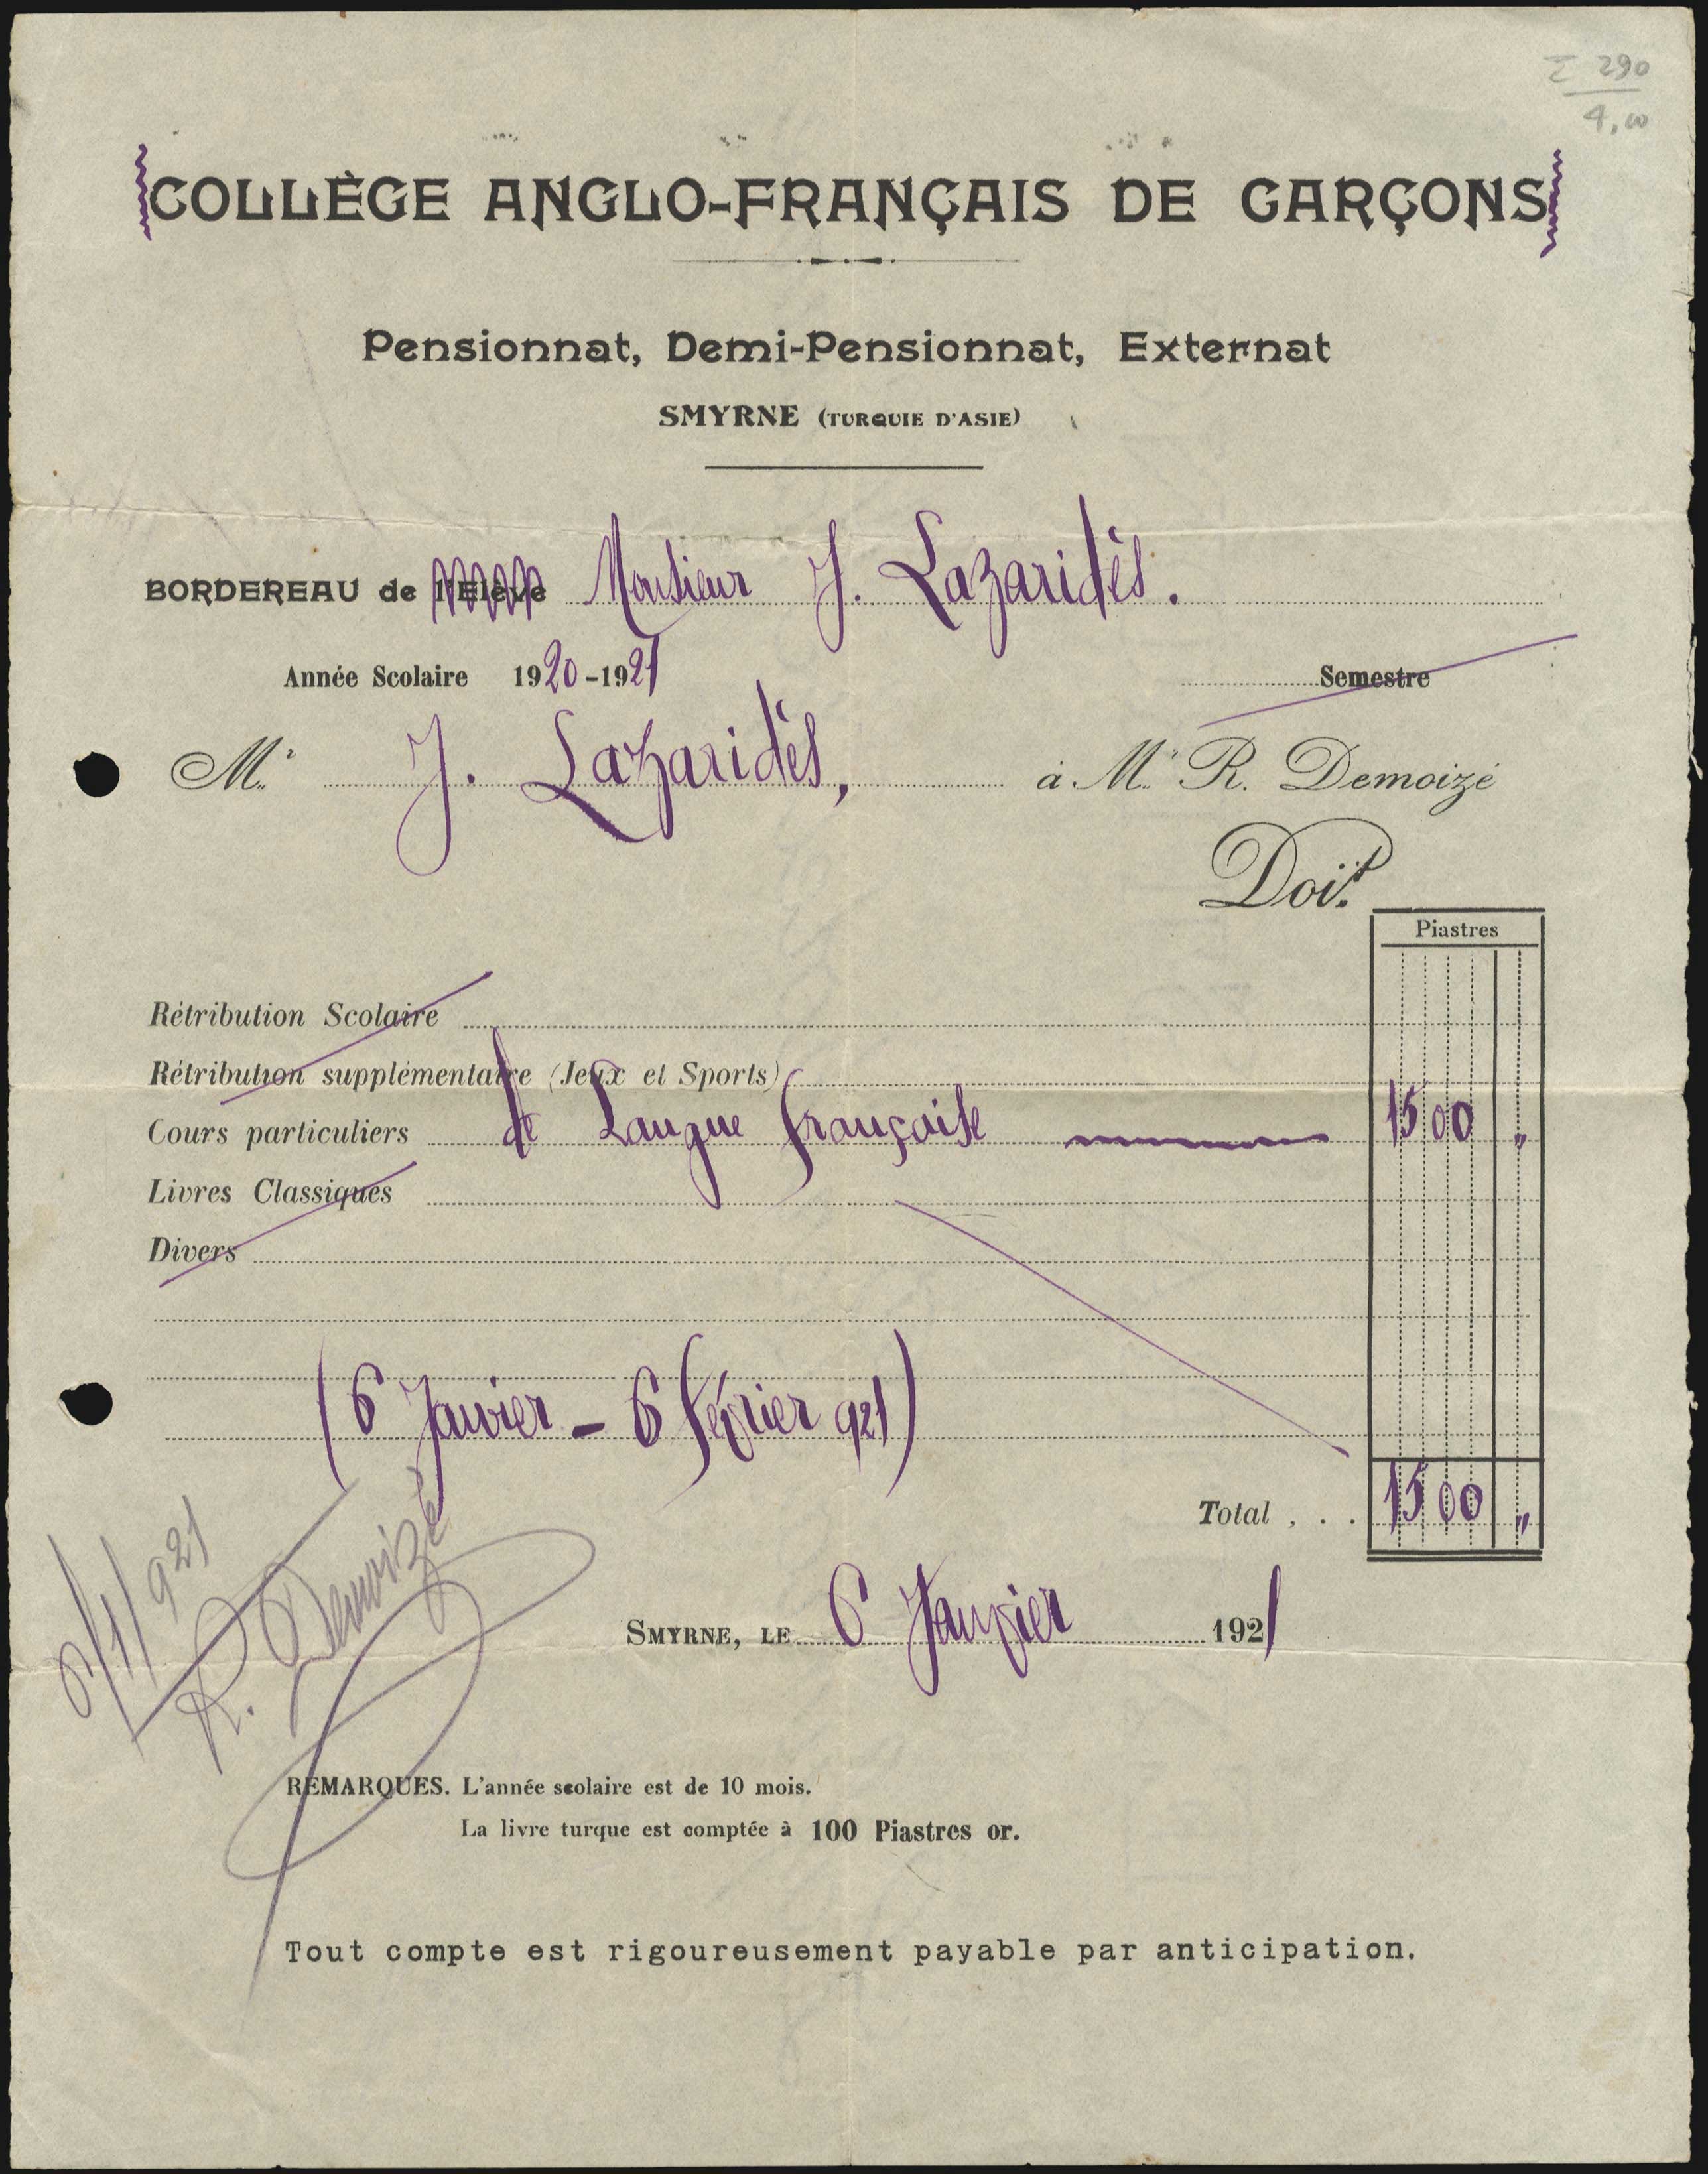 Σ 290
4,00
COLLÈGE ANGLO-FRANÇAIS DE GARÇONS
Pensionnat, Demi-Pensionnat, Externat
SMYRNE (TURQUIE D'ASIE)
BORDEREAU de l'Elève Monsieur J. Lazaridès.
Année Scolaire 1920-1921 Semestre
Mr J. Lazaridès, à Mr R. Demoizé
Doit
Piastres
Rétribution Scolaire
Rétribution supplémentaire (Jeux et Sports)
Cours particuliers de Langue française 1500 "
Livres Classiques
Divers
(6 Janvier - 6 février 921)
Total . . . 1500 "
6/1/921
R. Demoizé
SMYRNE, LE 6 Janvier 1921
REMARQUES. L'année scolaire est de 10 mois.
La livre turque est comptée à 100 Piastres or.
Tout compte est rigoureusement payable par anticipation.